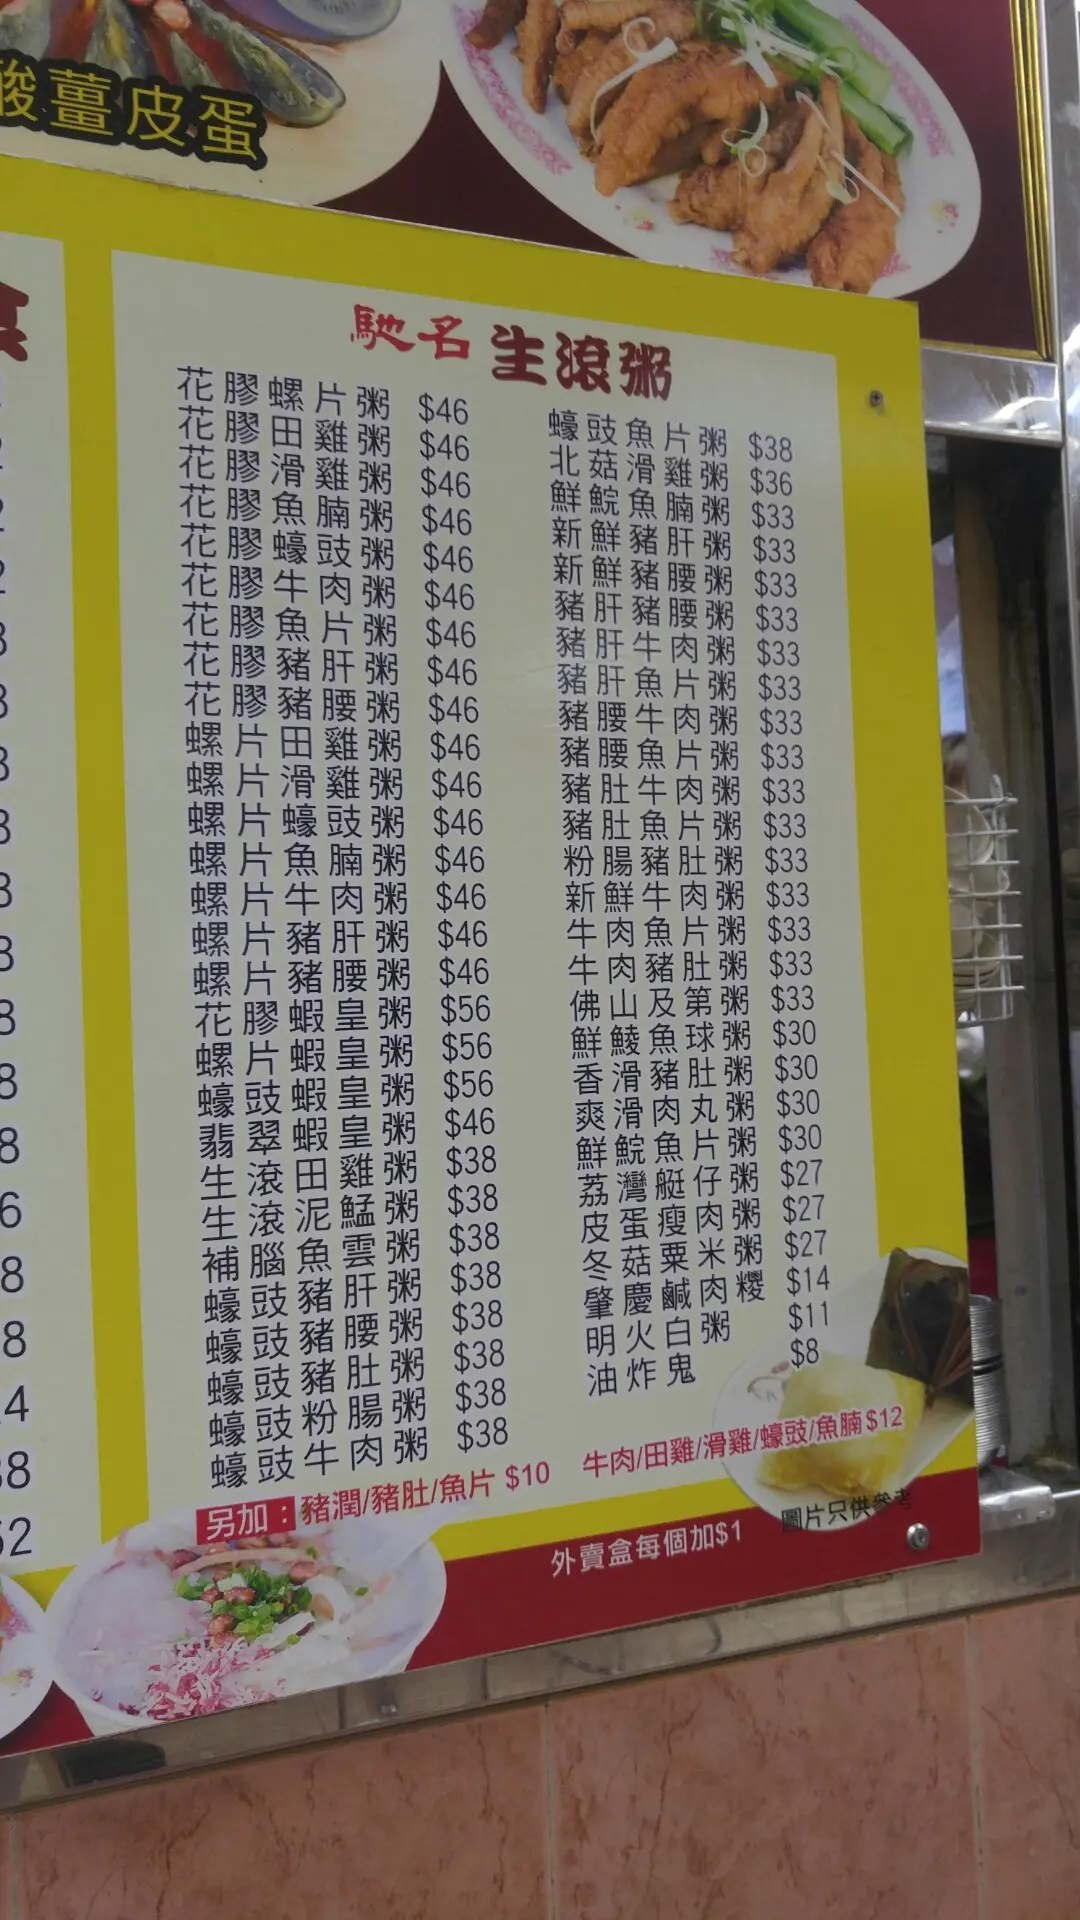 酸薑皮蛋
馳名 生滾粥
花膠螺片粥 $46
花膠田雞粥 $46
花膠滑雞粥 $46
花膠魚腩粥 $46
花膠蠔豉粥 $46
花膠牛肉粥 $46
花膠魚片粥 $46
花膠豬肝粥 $46
花膠豬腰粥 $46
螺片田雞粥 $46
螺片滑雞粥 $46
螺片蠔豉粥 $46
螺片魚腩粥 $46
螺片牛肉粥 $46
螺片豬肝粥 $46
螺片豬腰粥 $46
花膠蝦皇粥 $56
螺片蝦皇粥 $56
蠔豉蝦皇粥 $56
翡翠蝦皇粥 $46
生滾田雞粥 $38
生滾泥鯭粥 $38
補腦魚雲粥 $38
蠔豉豬肝粥 $38
蠔豉豬腰粥 $38
蠔豉豬肚粥 $38
蠔豉粉腸粥 $38
蠔豉牛肉粥 $38
蠔豉魚片粥 $38
北菇滑雞粥 $36
鮮鯇魚腩粥 $33
新鮮豬肝粥 $33
新鮮豬腰粥 $33
豬肝豬腰粥 $33
豬肝牛肉粥 $33
豬肝魚片粥 $33
豬腰牛肉粥 $33
豬腰魚片粥 $33
豬肚牛肉粥 $33
豬肚魚片粥 $33
粉腸豬肚粥 $33
新鮮牛肉粥 $33
牛肉魚片粥 $33
牛肉豬肚粥 $33
佛山及第粥 $33
鮮鯪魚球粥 $30
香滑豬肚粥 $30
爽滑肉丸粥 $30
鮮鯇魚片粥 $30
荔灣艇仔粥 $27
皮蛋瘦肉粥 $27
冬菇粟米粥 $27
肇慶鹹肉糭 $14
明火白粥 $11
油炸鬼 $8
另加：豬潤/豬肚/魚片 $10 牛肉/田雞/滑雞/蠔豉/魚腩 $12
外賣盒每個加$1 圖片只供參考